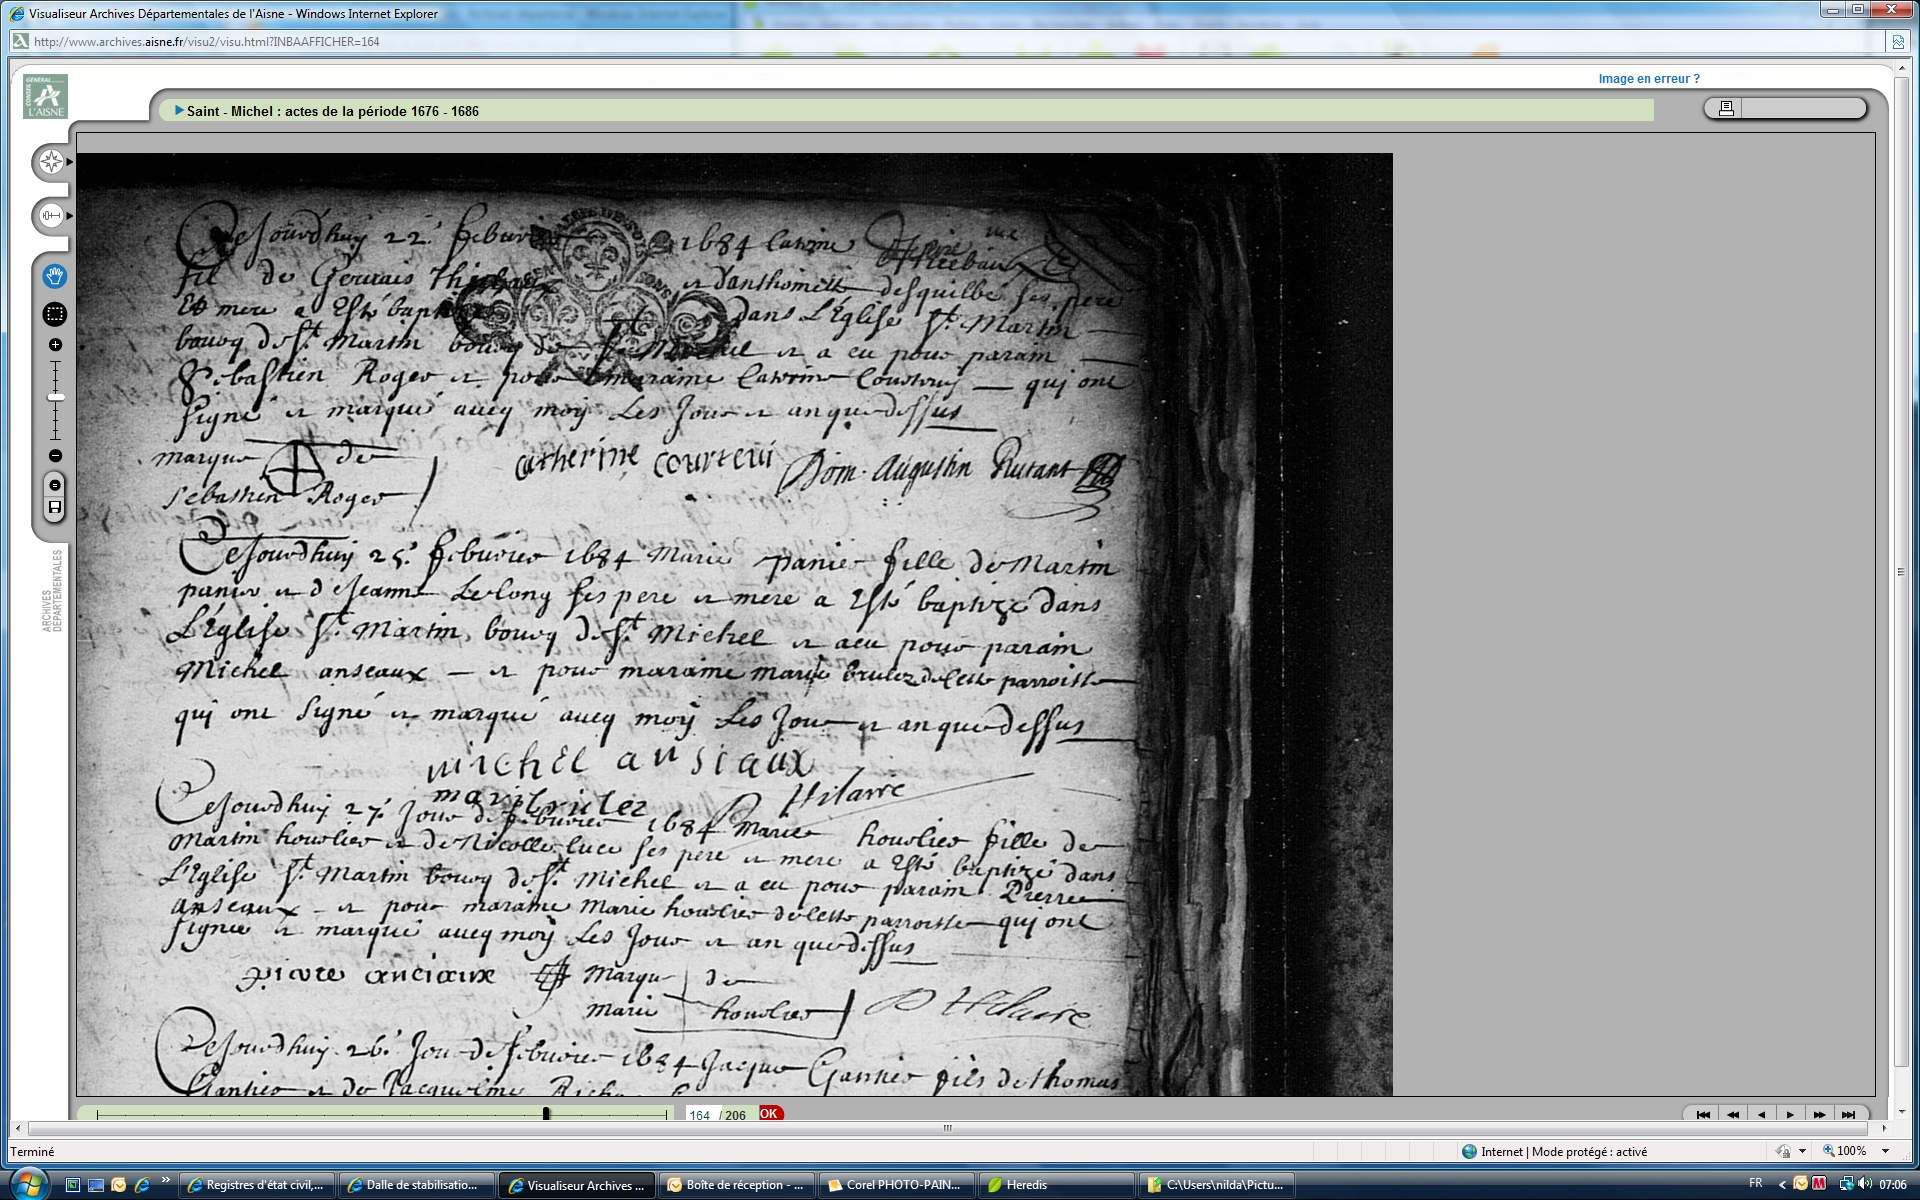 Visualiseur Archives Départementales de l'Aisne - Windows Internet Explorer
http://www.archives.aisne.fr/visu2/visu.html?INBAAFFICHER=164
Image en erreur ?
GÉNÉRAL
CONSEIL
L'AISNE
Saint - Michel : actes de la période 1676 - 1686
ARCHIVES
DEPARTEMENTALES
Cejourdhuy 22e 1684 Caterine
fil de Gervais desquilbé ses pere
Et mere a Esté dans L'Eglise St. Martin
bourcq de St. Martin bourcq de St. Michel et a eu pour parain
Sebastien Roger et pour maraine Caterine qui ont
signé et marqué avecq moy les Jour et an que dessus
marque de
sebastien Roger
catherine courteui
Dom Augustin Rutant
Cejourdhuy 25e febvrier 1684 Marie panier fille de Martin
panier et de Jeanne Lelong ses pere et mere a Esté baptizé dans
L'Eglise St. Martin bourcq de St. Michel et a eu pour parain
Michel anseaux et pour maraine marie brulez de cette parroisse
qui ont signé et marqué avecq moy les Jour et an que dessus
michel ansiaux
mari brulez
Hilaire
Cejourdhuy 27e Jour de febvrier 1684 Marie houlier fille de
Martin houlier et de Nicolle luce ses pere et mere a Esté baptizé dans
L'Eglise St. Martin bourcq de St. Michel et a eu pour parain Pierre
anseaux et pour maraine Marie houlier de cette parroisse qui ont
signee et marqué avecq moy les Jour et an que dessus
piere anciaux
Marque de
marie houlier
D Hilaire
Cejourdhuy 26e Jour de febvrier 1684 Jacque Gantier fils de thomas
Gantier et de Jacquelinne
164 / 206 OK
Terminé
Internet | Mode protégé : activé
100%
Registres d'état civil,...
Dalle de stabilisatio...
Visualiseur Archives ...
Boîte de réception - ...
Corel PHOTO-PAIN...
Heredis
C:\Users\nilda\Pictu...
FR
07:06